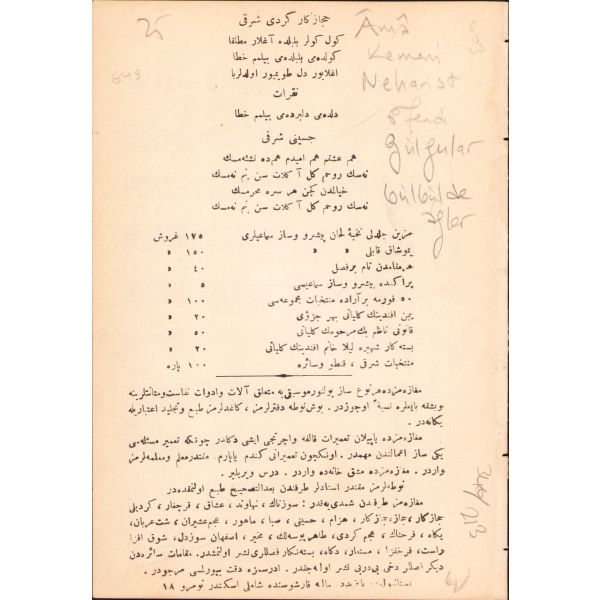 حجازكار كردی شرقی
كول كولر بلبلده آغلار مطلقا
كولده‌می بلبلده‌می بیلمم خطا
اغلایور دل طویمیور اولدلربا
فقرات
دلده‌می دلبرده‌می بیلمم خطا
حسینی شرقی
هم عشقم هم امیدم هم‌ده نشئه‌مسك
نه‌سك روحم كل آ كلات سن بنم نه‌مسك
خیالمدن كچن هر سره محرمسك
نه‌سك روحم كل آ كلات سن بنم نه‌مسك
مزین جلدلی نخبهٔ الحان پیشرو وساز سماعیلری ١٧٥ غروش
یموشاق قابلی » » ١٥٠ »
هر مقامدن تام بر فصل ٤٠ »
پراكنده پیشرو وساز سماعیسی ٥ »
٥٠ فورمه بر آراده منتخبات مجموعه‌سی ١٠٠ »
یمن افندینك كلیاتی بهر جزؤی ٢٠ »
قانونی ناظم بك مرحومك كلیاتی ٥٠ »
بسته‌كار شهیره لیلا خانم افندینك كلیاتی ٢٠ »
منتخبات شرقی ، قنطو وسائره ١٠٠ پاره
مغازه‌مزده هرنوع ساز بولنور موسیقی‌یه متعلق آلات وادوات نفاست ومتانتلرینه
وبشقه یایلره نسبةً اوجوزدر . بوش نوطه دفترلرمز ، كاغدلرمز طبع وتجلید اعتباریله
یكانه‌در .
مغازه‌مزده یاپیلان تعمیرات قالفه واجرتجی ایشی دكلدر چونكه تعمیر مسئله‌سی
یكی ساز اعمالندن مهمدر . اونكیچون تعمیراتی كندم یاپارم . مقتدر معلم ومعلمه‌لرمز
واردر . مغازه‌مزده مشق خانه‌ده واردر . درس ویریلیر .
نوطه‌لرمز مقتدر استادلر طرفندن بعدالتصحیح طبع اولنمقده‌در
مغازه‌مز طرفندن شمدی‌یه‌قدر : سوزناك ، نهاوند ، عشاق ، قرجغار ، كردیلی
حجازكار ، حجاز ، حجازكار ، هزام ، حسینی ، صبا ، ماهور ، عجم‌عشیران ، شت‌عربان ،
یكاه ، فرحناك ، عجم كردی ، طاهر بوسه‌لك ، مخیر ، اصفهان سوزدل ، شوق افزا
راست ، فرحفزا ، مستعار ، دكاه ، بسته‌نكار فصللری نشر اولنمشدر . مقامات سائره‌دن
دیكر اصللر دخی پی‌درپی نشر اوله‌جقدر . ادرسمزه دقت بیورلمسی مرجودر .
قارشوسنده شاملی اسكندر نومرو ١٨
25
649
Âmâ
Kemani
Neharist
Efendi
Gülgular
bülbülde
ağlar